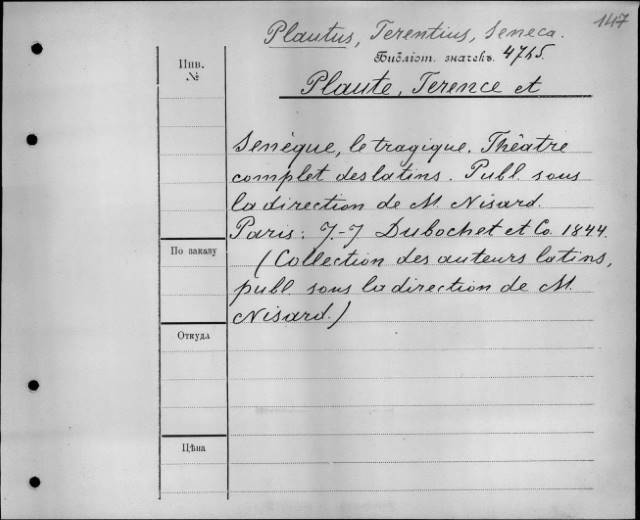 147
Plautus, Terentius, Seneca.
Инв. №
Библіот. значекъ. 4765.
Plaute, Terence et
Senèque, le tragique. Théatre
complet des latins. Publ. sous
la direction de M. Nisard.
Paris: J.-J Dubochet et Co. 1844.
(Collection des auteurs latins,
publ. sous la direction de M.
Nisard.)
По заказу
Откуда
Цѣна